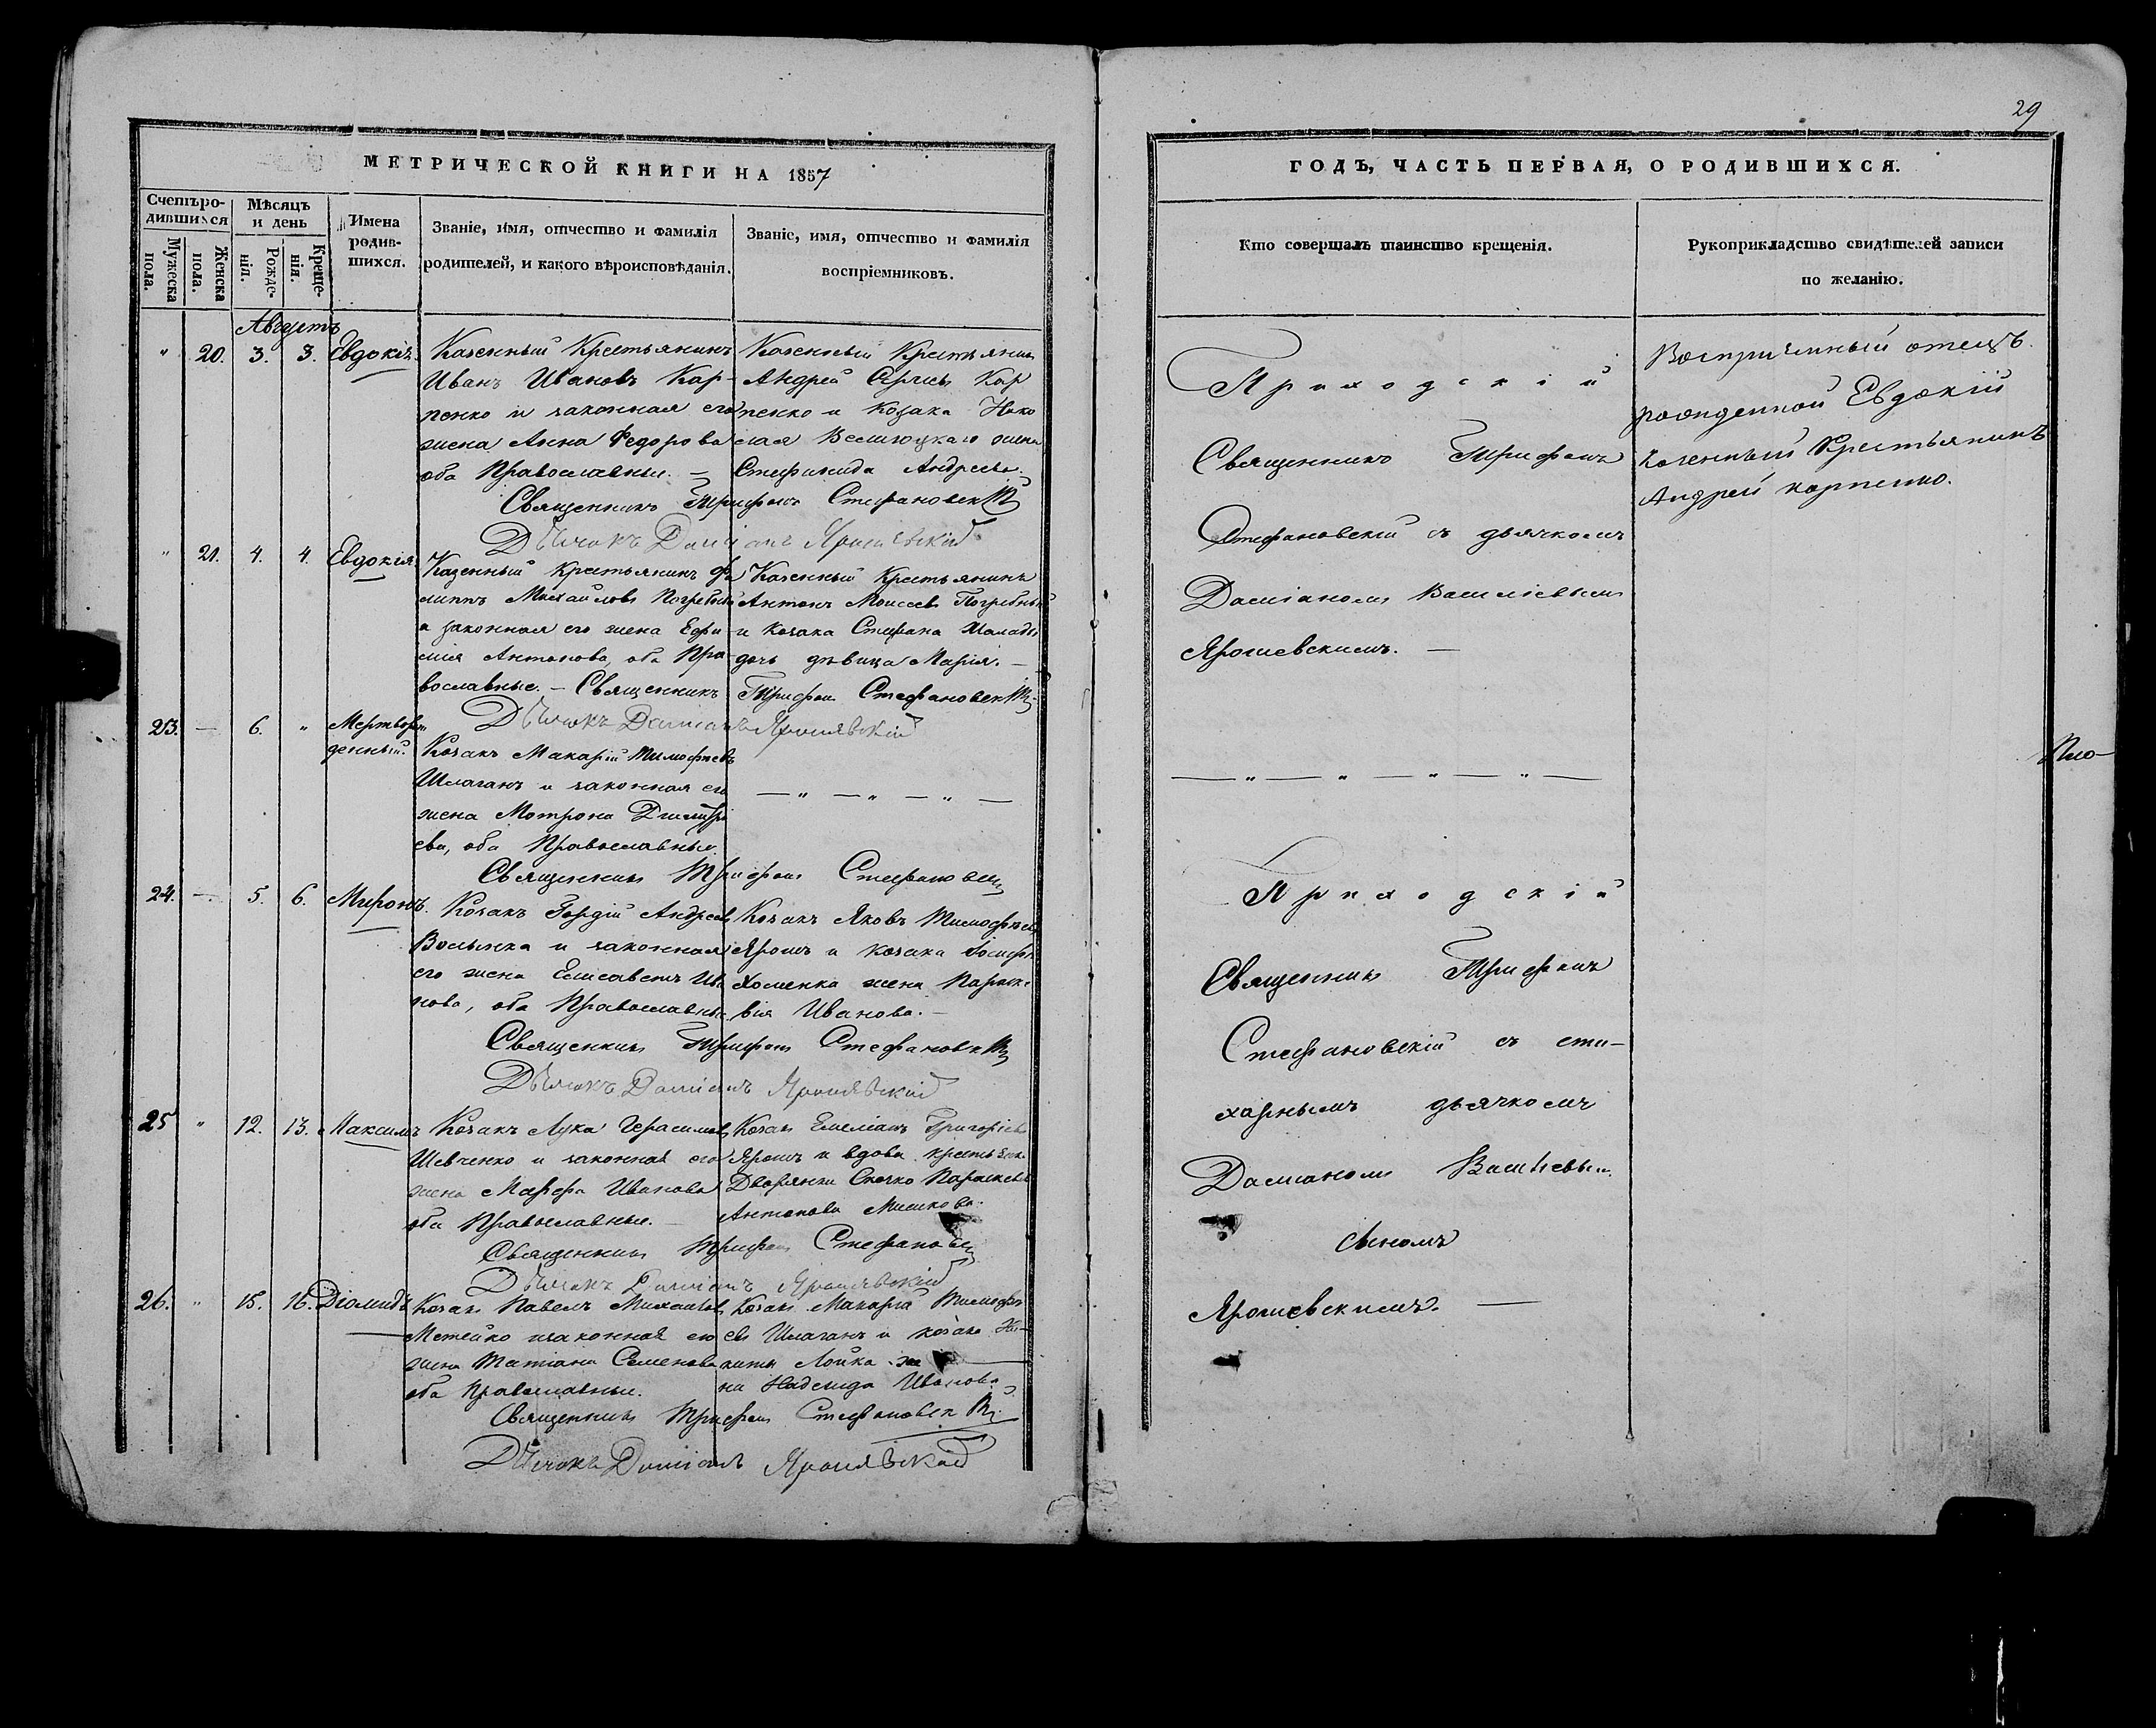 МЕТРИЧЕСКОЙ КНИГИ НА 1857
Счетъ родившихся
Мужеска пола.
Женска пола.
Мѣсяцъ и день
Рожденія.
Крещенія.
Имена родившихся.
Званіе, имя, отчество и фамилія
родителей, и какого вѣроисповѣданія.
Званіе, имя, отчество и фамилія
воспріемниковъ.
Августъ
" 20. 3. 3. Евдокія.
Казенный Крестьянинъ
Иванъ Ивановъ Кар-
пенко и законная его
жена Анна Федорова
оба Православные. —
Казенный Крестьянинъ
Андрей Карпенко и Козака
жена
Стефанида Андреева.
Священникъ Трифонъ Стефановскій
Дьячокъ Даміанъ Ярошевскій
" 21. 4. 4. Евдокія
Казенный Крестьянинъ Фи
липпъ Михайловъ Погребный
и законная его жена Ефи-
мія Антонова, оба Пра-
вославные. — Священникъ
Казенный Крестьянинъ
Антонъ Моисеевъ Погребный
и Козака Стефана
дочь дѣвица Марія. —
Трифонъ Стефановскій
Дьячокъ Даміанъ Ярошевскій
23. — 6. " Мертворож
денный.
Козакъ Макарій Тимофеевъ
Шмаганъ и законная его
жена Мотрона Димитрі
ева, оба Православные
— " — " — " —
Священникъ Трифонъ Стефановскій
24. — 5. 6. Миронъ.
Козакъ Гордій Андреевъ
Волынка и законная
его жена Елисаветъ Ива
нова, оба Православные
Козакъ Яковъ Тимофеевъ
Ярошъ и козака Іосифа
Хоменка жена Параске
вія Иванова. —
Священникъ Трифонъ Стефановскій
Дьячокъ Даміанъ Ярошевскій
25 " 12. 13. Максимъ
Козакъ Лука Герасимовъ
Шевченко и законная его
жена Марфа Иванова
оба Православные. —
Козакъ Емеліанъ Григоріевъ
Ярошъ и вдова
Параскева
Антонова
Священникъ Трифонъ Стефановскій
Дьячокъ Даміанъ Ярошевскій
26. " 15. 16. Діомидъ
Козакъ Павелъ Михайловъ
Метейко и законная его
жена Татіана Семенова
оба православные.
Козакъ Макарій Тимофе
евъ Шмаганъ и козака Ни-
киты Лойка же
на Надежда Иванова
Священникъ Трифонъ Стефановскій
Дьячокъ Даміанъ Ярошевскій
29
ГОДЪ, ЧАСТЬ ПЕРВАЯ, О РОДИВШИХСЯ.
Кто совершалъ таинство крещенія.
Рукоприкладство свидѣтелей записи
по желанію.
Приходскій
Священникъ Трифонъ
Стефановскій съ дьячкомъ
Даміаномъ Василіевымъ
Ярошевскимъ. —
отецъ
рожденной Евдокій
казенный Крестьянинъ
Андрей карпенко.
— " — " — " — " —
Приходскій
Священникъ Трифонъ
Стефановскій съ сти-
харнымъ дьячкомъ
Даміаномъ Василіевымъ
сыномъ
Ярошевскимъ. —